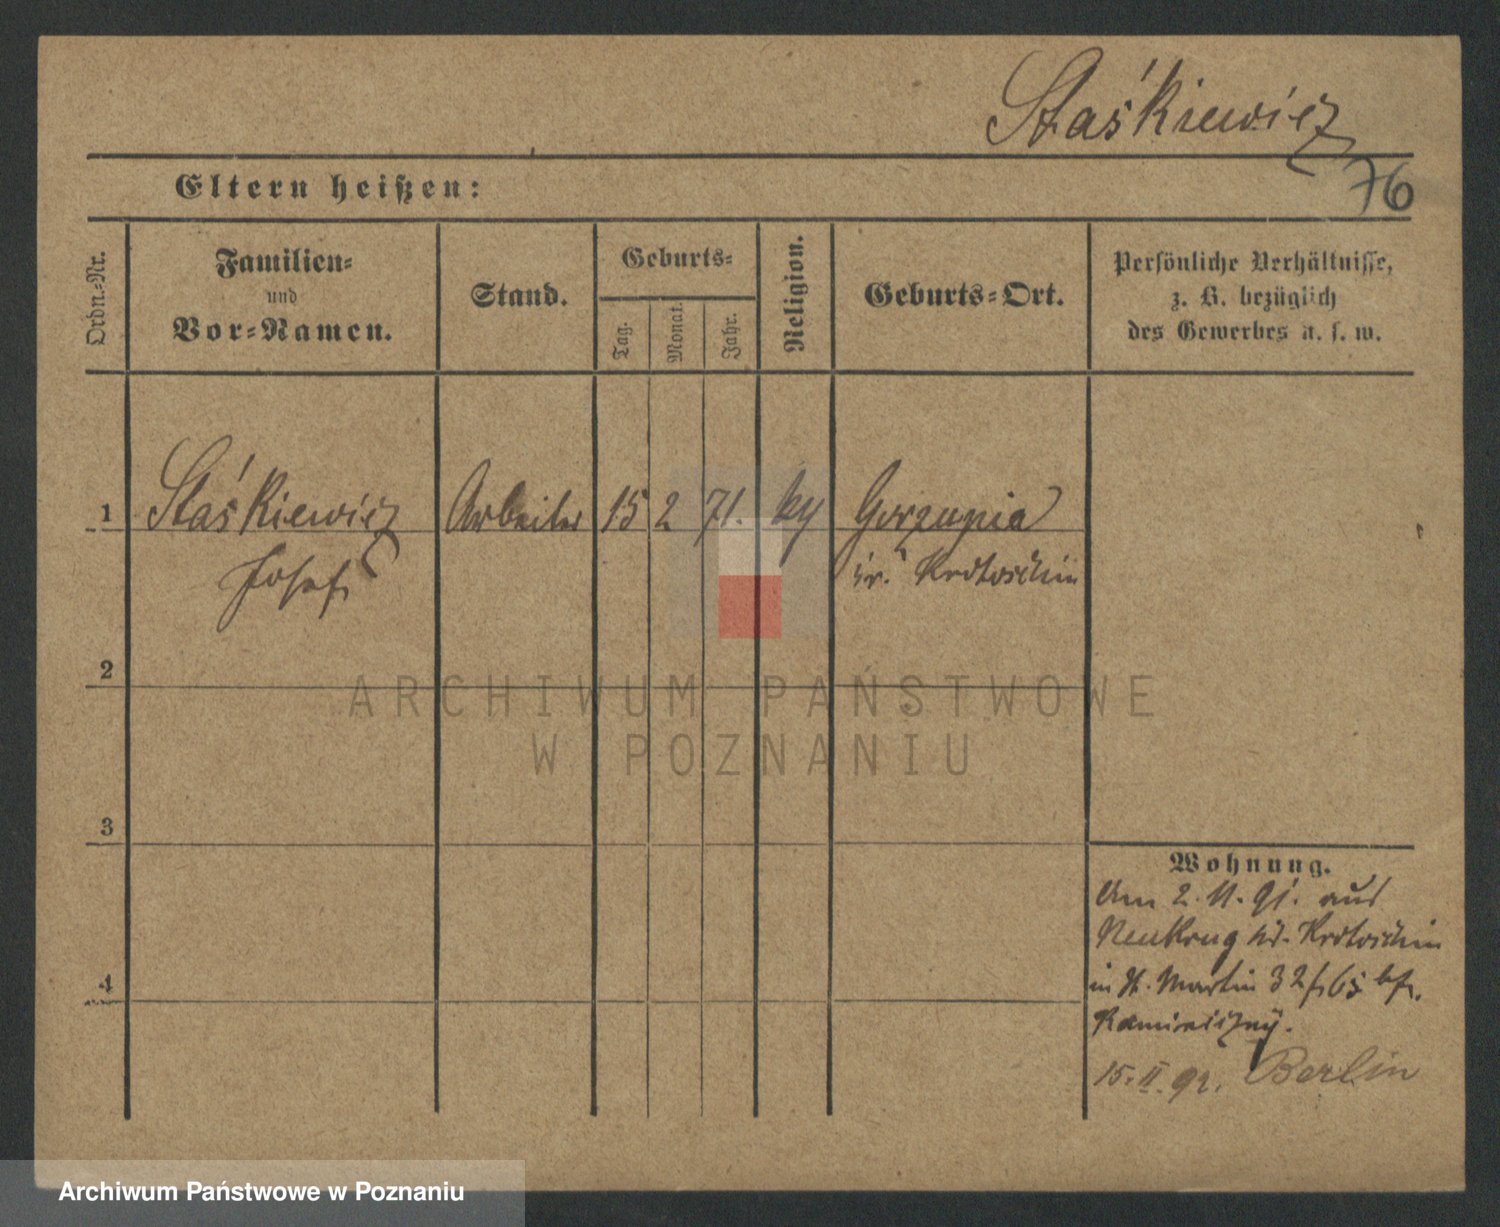 Staśkiewicz
76
Eltern heißen:
Ordn.-Nr.
Familien-
und
Vor-Namen.
Stand.
Geburts-
Tag.
Monat.
Jahr.
Religion.
Geburts-Ort.
Persönliche Verhältnisse,
z. B. bezüglich
des Gewerbes u. s. w.
1 Staśkiewicz Arbeiter 15 2 71. Gorzupia
Josef Krotoschin
2
ARCHIWUM PAŃSTWOWE
W POZNANIU
3
4
Wohnung.
Am 2. 11. 91. aus
Neukrug Krotoschin
in St. Martin 32
15. II. 92. Berlin
Archiwum Państwowe w Poznaniu